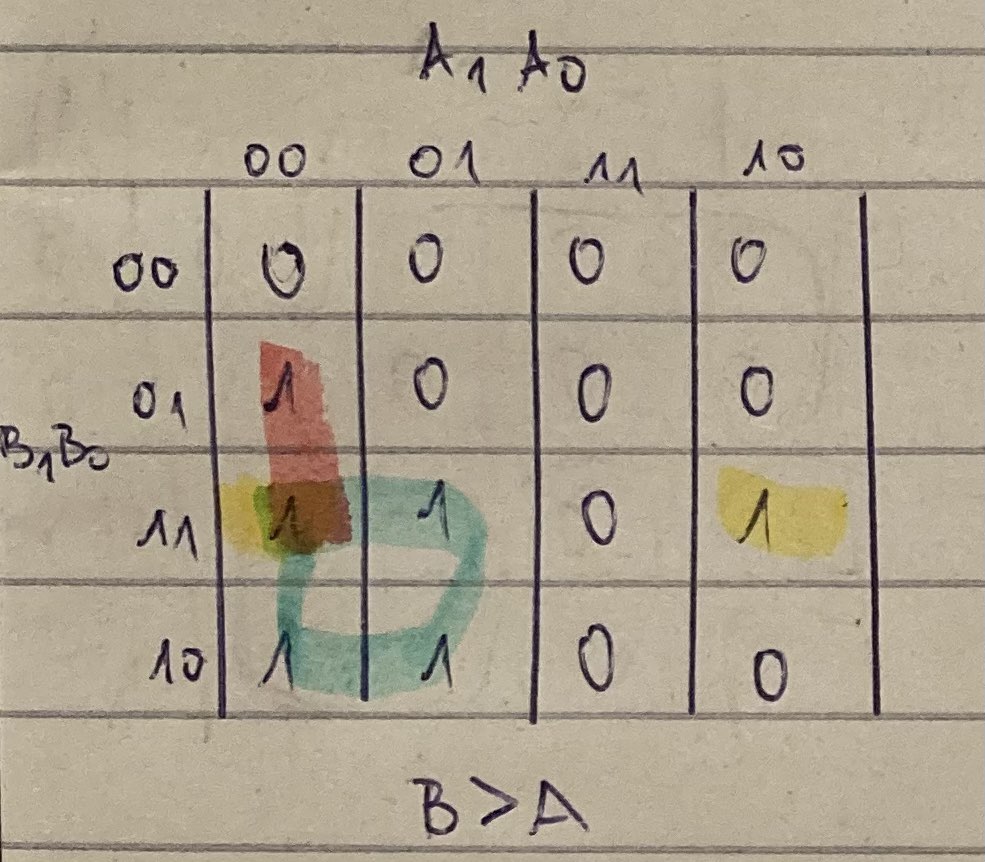 A1 A0
00 01 11 10
00 0 0 0 0
01 1 0 0 0
B1B0
11 1 1 0 1
10 1 1 0 0
B>A